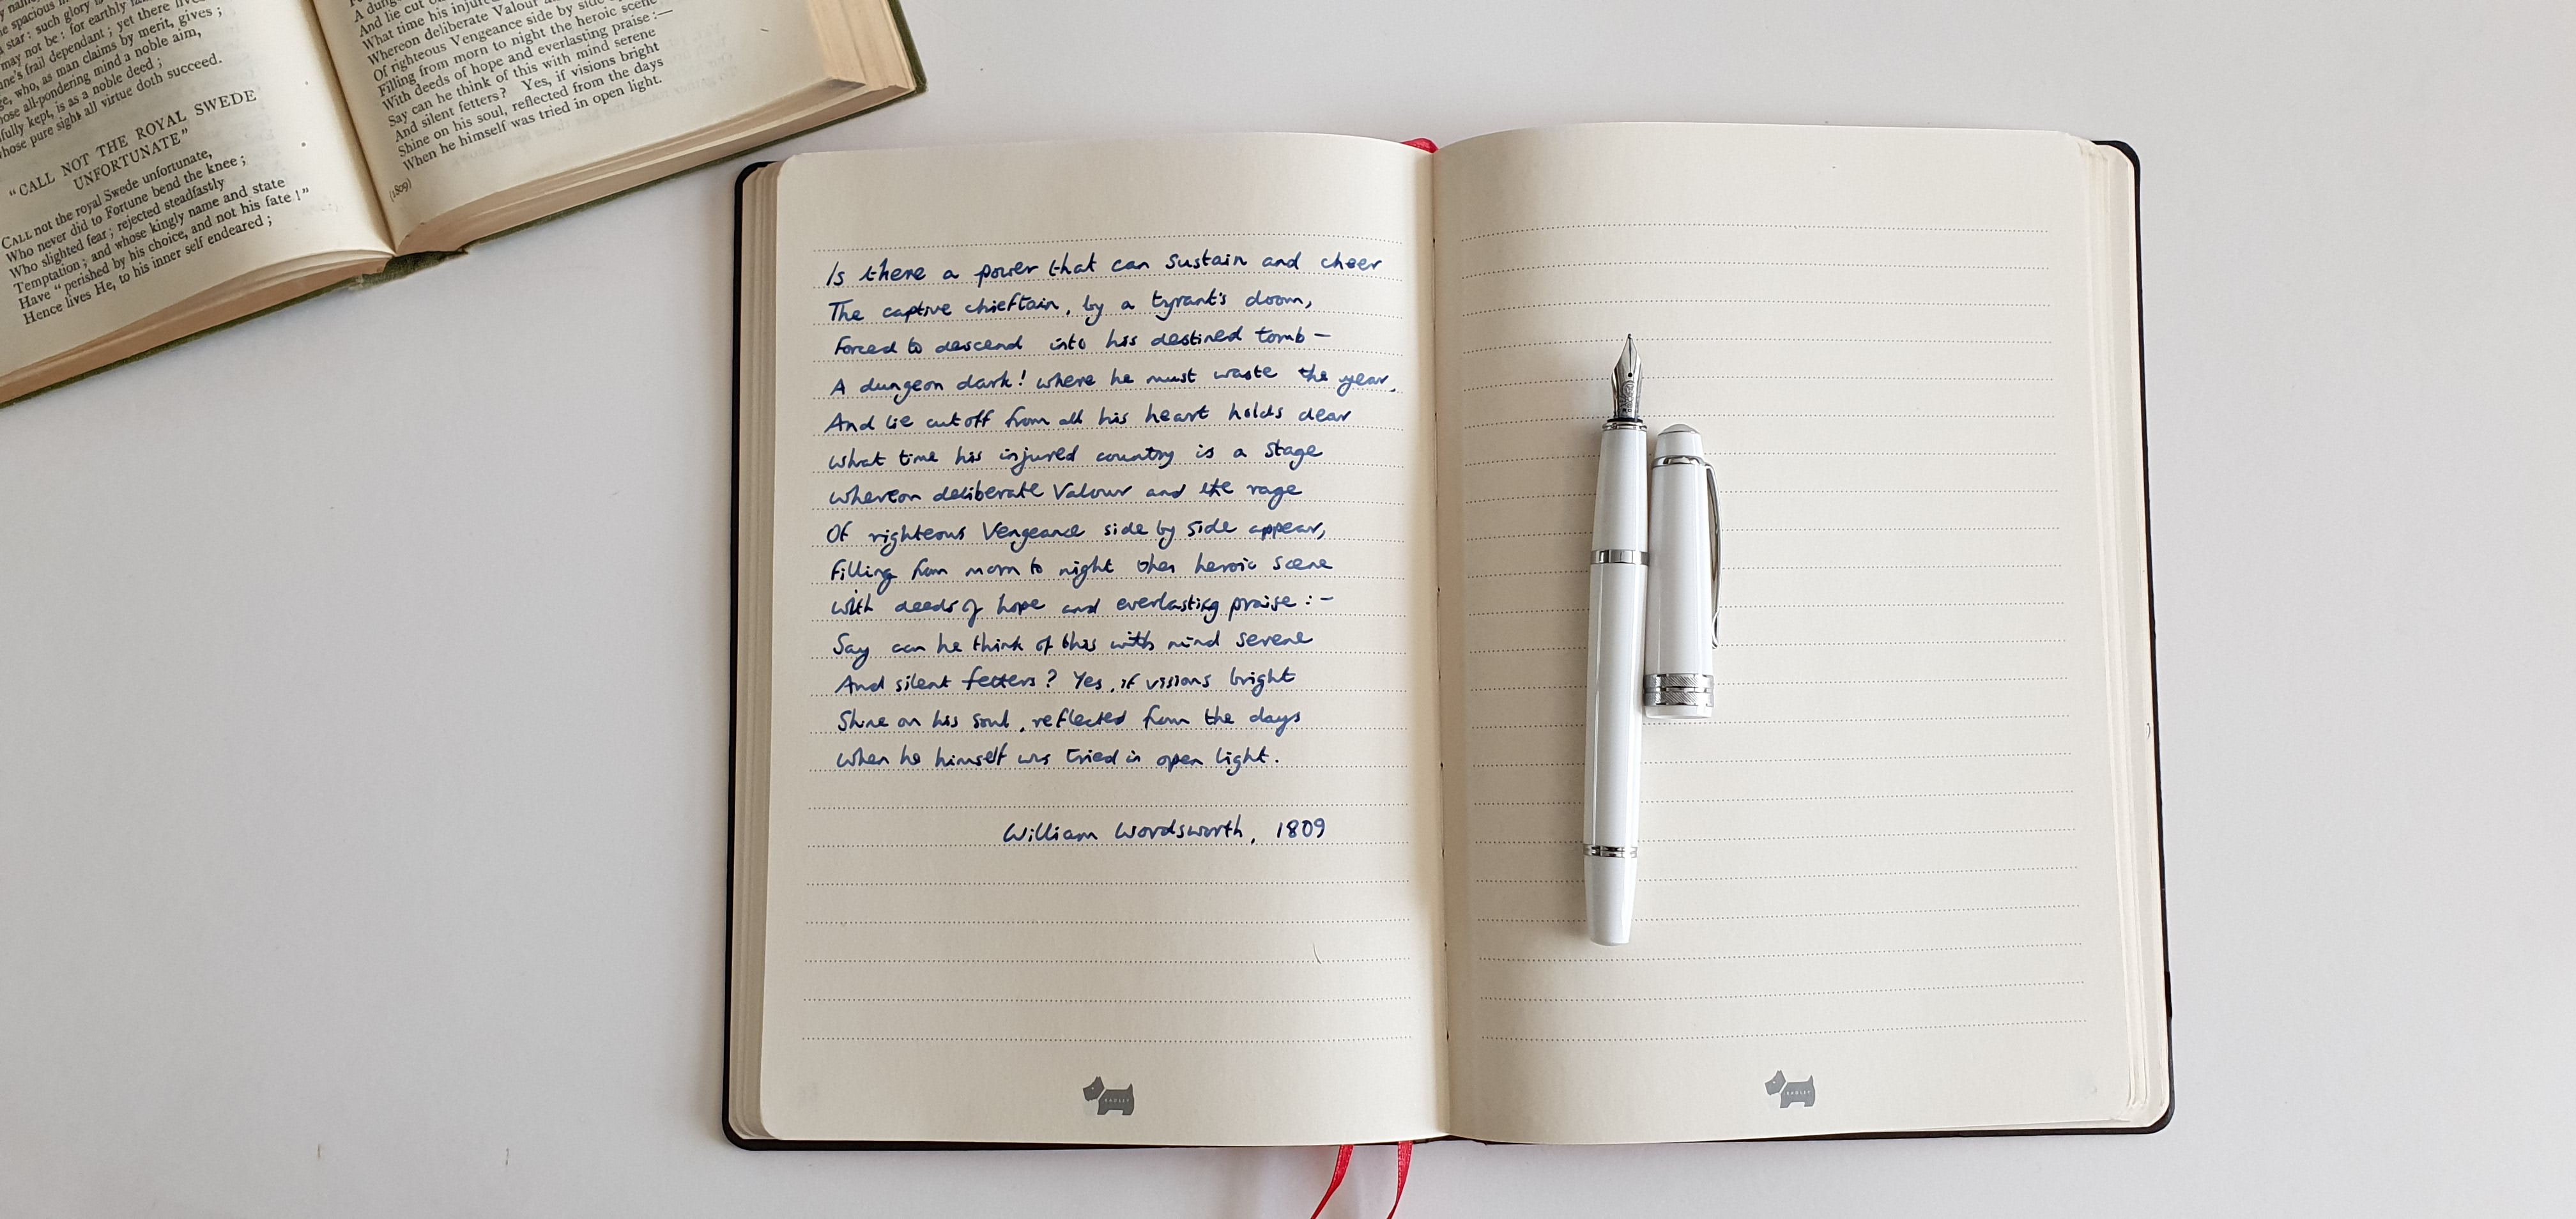 spacious
star: such glory is
may not be: for earthly
frail dependant; yet there
who, as man claims by merit, gives;
all-pondering mind a noble aim,
kept, is as a noble deed;
whose pure sight all virtue doth succeed.
"CALL NOT THE ROYAL SWEDE
UNFORTUNATE"
CALL not the royal Swede unfortunate,
Who never did to Fortune bend the knee;
Who slighted fear; rejected steadfastly
Temptation; and whose kingly name and state
Have "perished by his choice, and not his fate!"
Hence lives He, to his inner self endeared;
A
And lie cut
What time his injur
Whereon deliberate Valour
Of righteous Vengeance side by side
Filling from morn to night the heroic scene
With deeds of hope and everlasting praise:—
Say can he think of this with mind serene
And silent fetters? Yes, if visions bright
Shine on his soul, reflected from the days
When he himself was tried in open light.
(1809)
Is there a power that can sustain and cheer
The captive chieftain, by a tyrant's doom,
Forced to descend into his destined tomb—
A dungeon dark! where he must waste the year,
And lie cut off from all his heart holds dear
What time his injured country is a stage
Whereon deliberate Valour and the rage
Of righteous Vengeance side by side appear,
Filling from morn to night the heroic scene
With deeds of hope and everlasting praise:-
Say can he think of this with mind serene
And silent fetters? Yes, if visions bright
Shine on his soul, reflected from the days
When he himself was tried in open light.
William Wordsworth, 1809
RADLEY
RADLEY